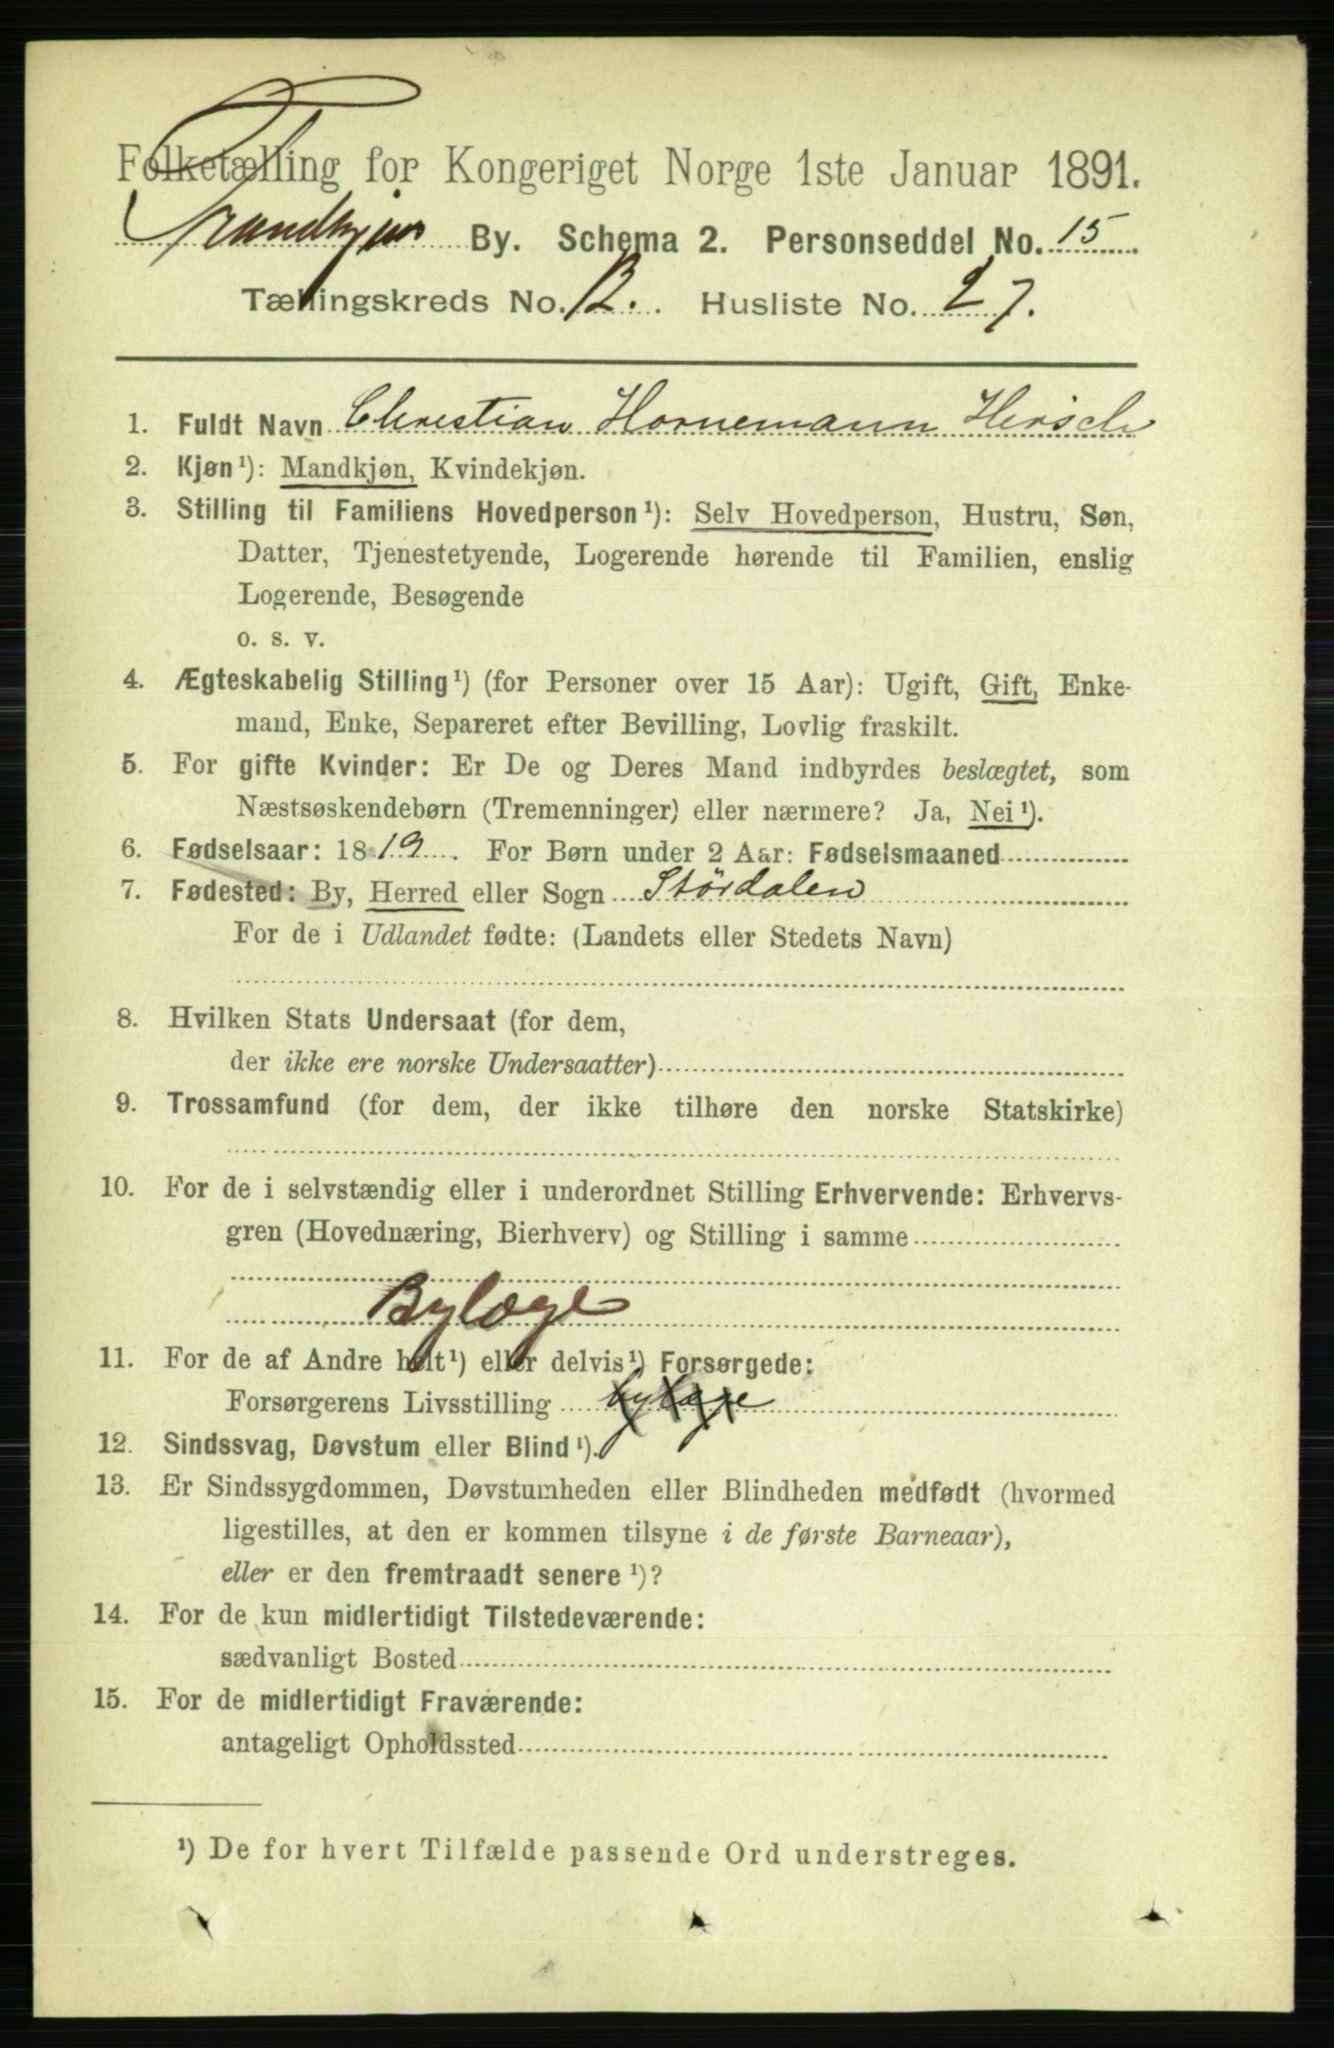 Folketælling for Kongeriget Norge 1ste Januar 1891.
Trondhjems By. Schema 2. Personseddel No. 15
Tællingskreds No. 12. Husliste No. 27.
1. Fuldt Navn Christian Hornemann Hersch
2. Kjøn¹): Mandkjøn, Kvindekjøn.
3. Stilling til Familiens Hovedperson¹): Selv Hovedperson, Hustru, Søn,
Datter, Tjenestetyende, Logerende hørende til Familien, enslig
Logerende, Besøgende
o. s. v.
4. Ægteskabelig Stilling¹) (for Personer over 15 Aar): Ugift, Gift, Enke-
mand, Enke, Separeret efter Bevilling, Lovlig fraskilt.
5. For gifte Kvinder: Er De og Deres Mand indbyrdes beslægtet, som
Næstsøskendebørn (Tremenninger) eller nærmere? Ja, Nei¹).
6. Fødselsaar: 1819. For Børn under 2 Aar: Fødselsmaaned
7. Fødested: By, Herred eller Sogn Størdalen
For de i Udlandet fødte: (Landets eller Stedets Navn)
8. Hvilken Stats Undersaat (for dem,
der ikke ere norske Undersaatter)
9. Trossamfund (for dem, der ikke tilhøre den norske Statskirke)
10. For de i selvstændig eller i underordnet Stilling Erhvervende: Erhvervs-
gren (Hovednæring, Bierhverv) og Stilling i samme
Bylæge
11. For de af Andre helt¹) eller delvis¹) Forsørgede:
Forsørgerens Livsstilling bylæge
12. Sindssvag, Døvstum eller Blind¹).
13. Er Sindssygdommen, Døvstumheden eller Blindheden medfødt (hvormed
ligestilles, at den er kommen tilsyne i de første Barneaar),
eller er den fremtraadt senere¹)?
14. For de kun midlertidigt Tilstedeværende:
sædvanligt Bosted
15. For de midlertidigt Fraværende:
antageligt Opholdssted
¹) De for hvert Tilfælde passende Ord understreges.